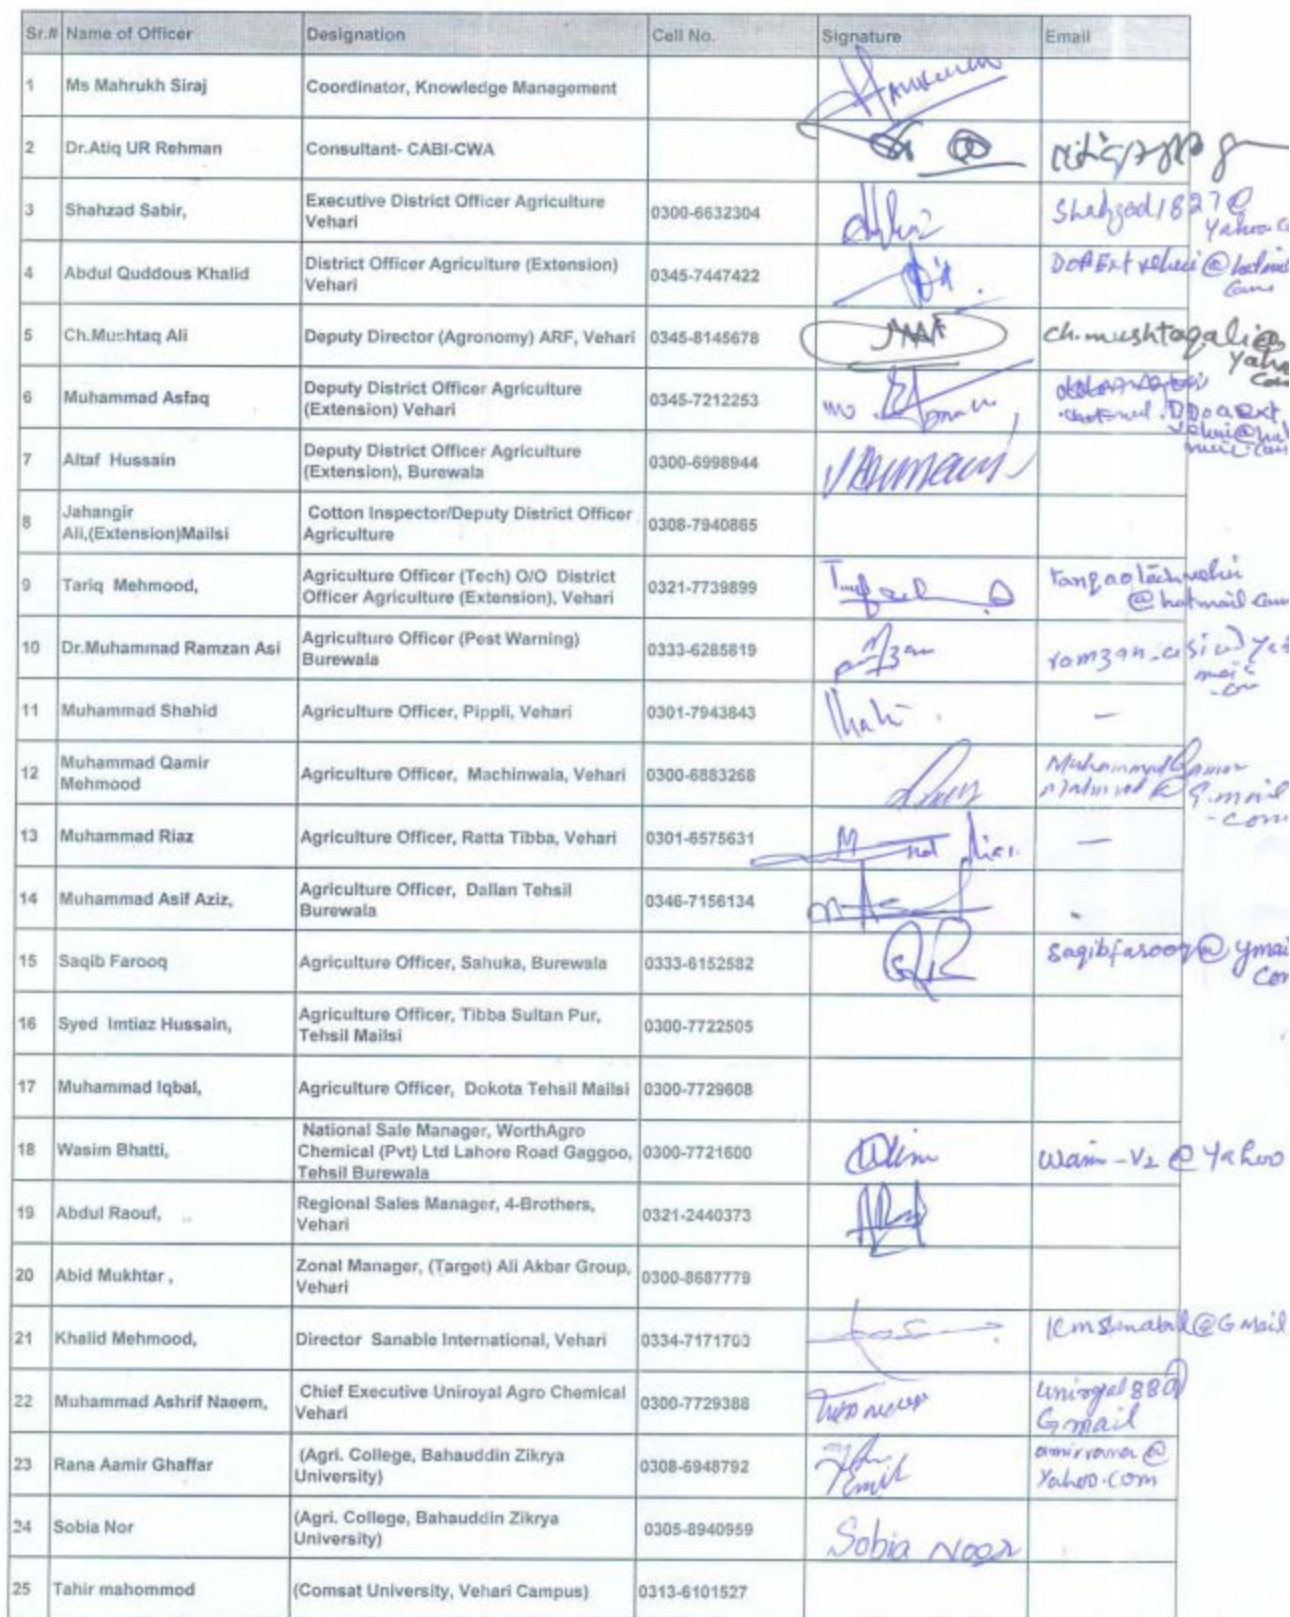 Sr.# Name of Officer Designation Cell No. Signature Email
1 Ms Mahrukh Siraj Coordinator, Knowledge Management
2 Dr.Atiq UR Rehman Consultant- CABI-CWA
3 Shahzad Sabir, Executive District Officer Agriculture
Vehari 0300-6632304 Shahzad1827@
Yahoo.
4 Abdul Quddous Khalid District Officer Agriculture (Extension)
Vehari 0345-7447422
5 Ch.Mushtaq Ali Deputy Director (Agronomy) ARF, Vehari 0345-8145678 ch.mushtaqali@
6 Muhammad Asfaq Deputy District Officer Agriculture
(Extension) Vehari 0345-7212253
7 Altaf Hussain Deputy District Officer Agriculture
(Extension), Burewala 0300-6998944
8 Jahangir
Ali,(Extension)Mailsi Cotton Inspector/Deputy District Officer
Agriculture 0308-7940865
9 Tariq Mehmood, Agriculture Officer (Tech) O/O District
Officer Agriculture (Extension), Vehari 0321-7739899
@hotmail
10 Dr.Muhammad Ramzan Asi Agriculture Officer (Pest Warning)
Burewala 0333-6285819
11 Muhammad Shahid Agriculture Officer, Pippli, Vehari 0301-7943843 —
12 Muhammad Qamir
Mehmood Agriculture Officer, Machinwala, Vehari 0300-6883268
13 Muhammad Riaz Agriculture Officer, Ratta Tibba, Vehari 0301-6575631 —
14 Muhammad Asif Aziz, Agriculture Officer, Dallan Tehsil
Burewala 0346-7156134
15 Saqib Farooq Agriculture Officer, Sahuka, Burewala 0333-6152582 saqibfarooq@
16 Syed Imtiaz Hussain, Agriculture Officer, Tibba Sultan Pur,
Tehsil Mailsi 0300-7722505
17 Muhammad Iqbal, Agriculture Officer, Dokota Tehsil Mailsi 0300-7729608
18 Wasim Bhatti, National Sale Manager, WorthAgro
Chemical (Pvt) Ltd Lahore Road Gaggoo,
Tehsil Burewala 0300-7721600 @Yahoo
19 Abdul Raouf, Regional Sales Manager, 4-Brothers,
Vehari 0321-2440373
20 Abid Mukhtar , Zonal Manager, (Target) Ali Akbar Group,
Vehari 0300-8687779
21 Khalid Mehmood, Director Sanable International, Vehari @GMail
22 Muhammad Ashrif Naeem, Chief Executive Uniroyal Agro Chemical
Vehari 0300-7729388
Gmail
23 Rana Aamir Ghaffar (Agri. College, Bahauddin Zikrya
University) 0308-6948792 amirrana@
Yahoo.com
24 Sobia Nor (Agri. College, Bahauddin Zikrya
University) 0305-8940959 Sobia Noor
25 Tahir mahommod (Comsat University, Vehari Campus) 0313-6101527